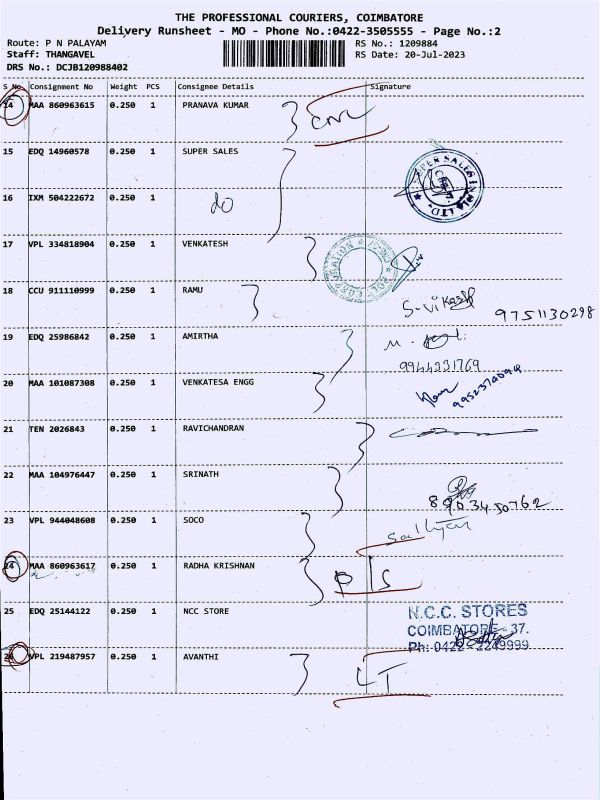 THE PROFESSIONAL COURIERS, COIMBATORE
Delivery Runsheet - MO - Phone No.:0422-3505555 - Page No.:2
Route: P N PALAYAM RS No.: 1209884
Staff: THANGAVEL RS Date: 20-Jul-2023
DRS No.: DCJB120988402
S No. Consignment No Weight PCS Consignee Details Signature
14 MAA 860963615 0.250 1 PRANAVA KUMAR
15 EDQ 14960578 0.250 1 SUPER SALES
16 IXM 504222672 0.250 1 do
17 VPL 334818904 0.250 1 VENKATESH
18 CCU 911110999 0.250 1 RAMU S-Vikash
9751130298
19 EDQ 25986842 0.250 1 AMIRTHA
9944231769
20 MAA 101087308 0.250 1 VENKATESA ENGG
21 TEN 2026843 0.250 1 RAVICHANDRAN
22 MAA 104976447 0.250 1 SRINATH
8903450762
23 VPL 944048608 0.250 1 SOCO
24 MAA 860963617 0.250 1 RADHA KRISHNAN
25 EDQ 25144122 0.250 1 NCC STORE N.C.C. STORES
COIMBATORE - 37.
Ph: 0422 - 2249999
26 VPL 219487957 0.250 1 AVANTHI